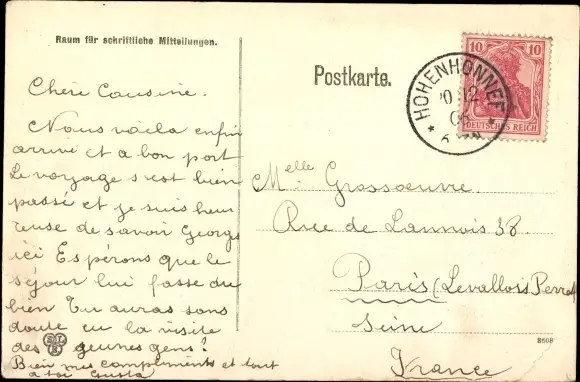 Raum für schriftliche Mitteilungen.
Chère Cousine.
Nous voila enfin
arrivé et a bon port
Le voyage s'est bien
passé et je suis heu
reuse de savoir Georges
ici Espérons que le
séjour lui fasse du
bien Tu auras sans
doute eu la visite
des jeunes gens?
Bien mes compliments et tout
a toi
Postkarte.
10 10
DEUTSCHES REICH
* HOHENHONNEF *
12
Melle Grossoeuvre.
Rue de Lannois 38.
Paris (Levallois Perret
Seine
France
8608